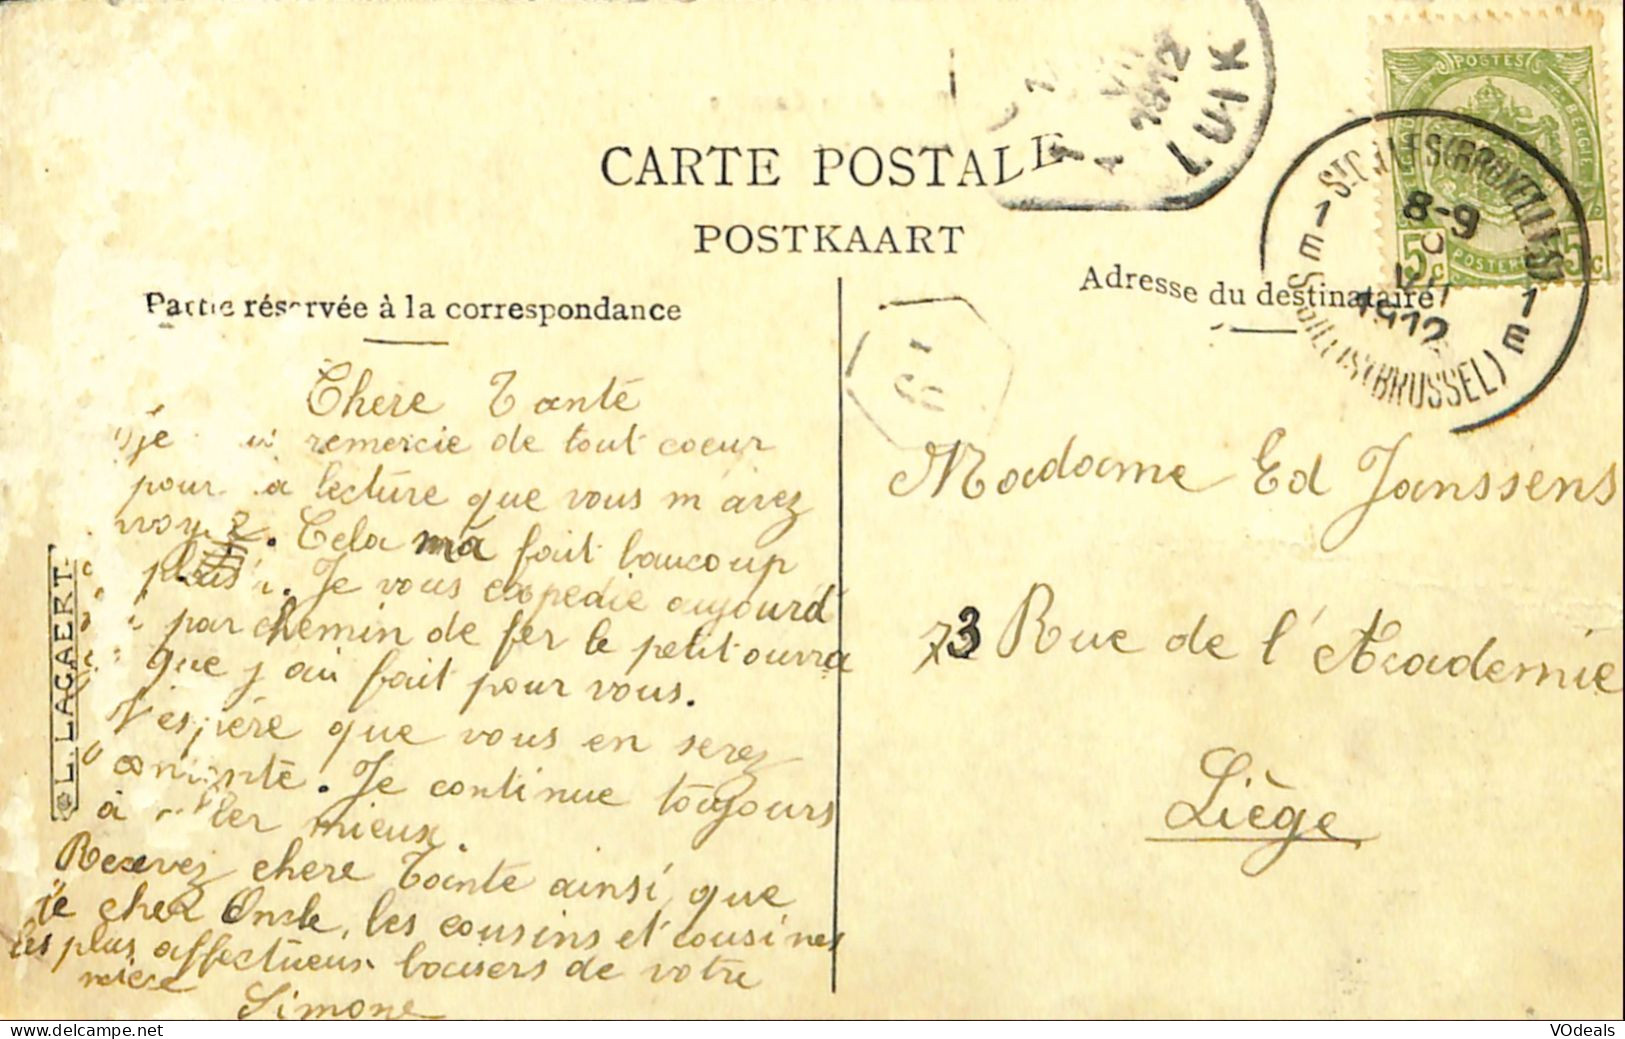 CARTE POSTALE
POSTKAART
Partie réservée à la correspondance
Adresse du destinataire
LUIK
1912
ST GILLES (BRUXELLES)
1E
8-9
VII
1912
1E
ST GILLIS (BRUSSEL)
POSTES
5c 5c
61
Chere Tante
je remercie de tout coeur
pour la lecture que vous m'avez
Cela ma fait baucoup
plus Je vous expedie aujourd'
par chemin de fer le petit ouvra
que j'ai fait pour vous.
J'espère que vous en serez
contente. Je continue toujours
à aller mieux.
Recevez chere Tante ainsi que
le cher Oncle, les cousins et cousines
les plus affectueux baisers de votre
niece
Simone
L. LAGAERT
Madame Ed Janssens
73 Rue de l'Academie
Liège
VOdeals
www.delcampe.net